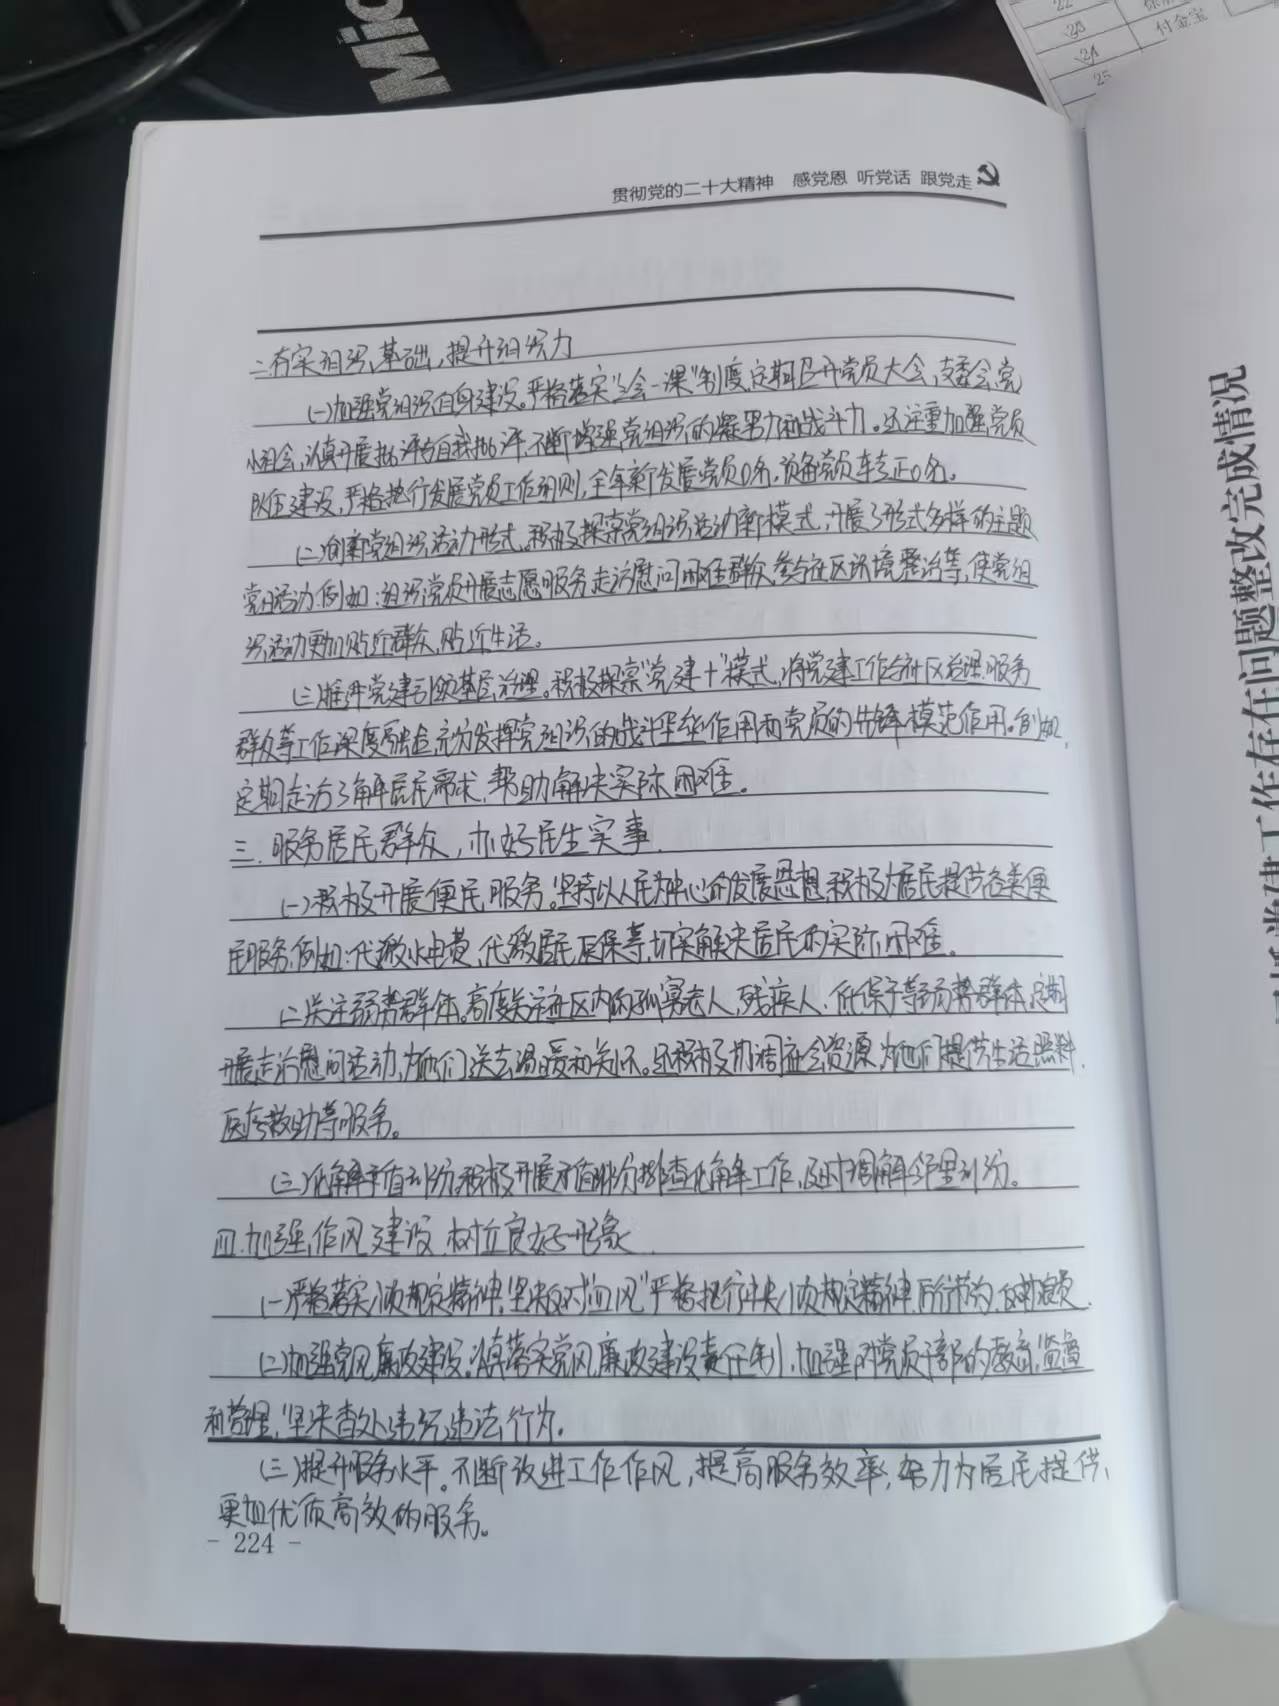 Mic
22
23
24
付金宝
25
贯彻党的二十大精神 感党恩 听党话 跟党走
二、夯实组织基础,提升组织力
(一)加强党组织自身建设。严格落实"三会一课"制度,定期召开党员大会,支委会,党
小组会,认真开展批评与自我批评,不断增强党组织的凝聚力和战斗力。还注重加强党员
队伍建设,严格执行发展党员工作细则,全年新发展党员0名,预备党员转正0名。
(二)创新党组织活动形式。积极探索党组织活动新模式,开展了形式多样的主题
党日活动.例如:组织党员开展志愿服务,走访慰问困难群众,参与社区环境整治等,使党组
织活动更加贴近群众,贴近生活。
(三)推进党建引领基层治理。积极探索"党建+"模式,将党建工作与社区治理、服务
群众等工作深度融合,充分发挥党组织的战斗堡垒作用和党员的先锋模范作用。例如,
定期走访了解居民需求,帮助解决实际困难。
三.服务居民群众,办好民生实事.
(一)积极开展便民服务。坚持以人民为中心的发展思想,积极为居民提供各类便
民服务,例如:代缴水电费,代缴居民医保等,切实解决居民的实际困难。
(二)关注弱势群体。高度关注社区内的孤寡老人,残疾人,低保户等弱势群体,定期
开展走访慰问活动,为他们送去温暖和关怀。还积极协调社会资源,为他们提供生活照料,
医疗救助等服务。
(三)化解矛盾纠纷,积极开展矛盾纠纷排查化解工作,及时调解邻里纠纷。
四.加强作风建设,树立良好形象.
(一)严格落实八项规定精神.坚决反对"四风"严格执行中央八项规定精神,厉行节约,反对浪费.
(二)加强党风廉政建设。认真落实党风廉政建设责任制,加强对党员干部的教育,监督
和管理,坚决查处违纪违法行为。
(三)提升服务水平。不断改进工作作风,提高服务效率,努力为居民提供
更加优质高效的服务。
- 224 -
党建工作存在问题整改完成情况